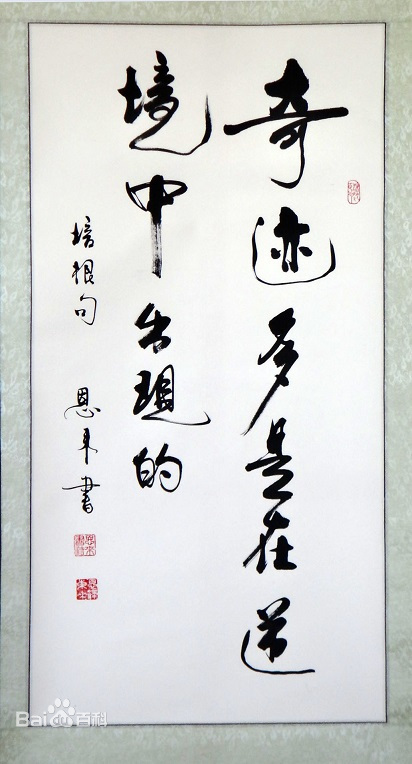 奇迹多是在逆
境中出現的
培根句 恩 書
Bai 百科